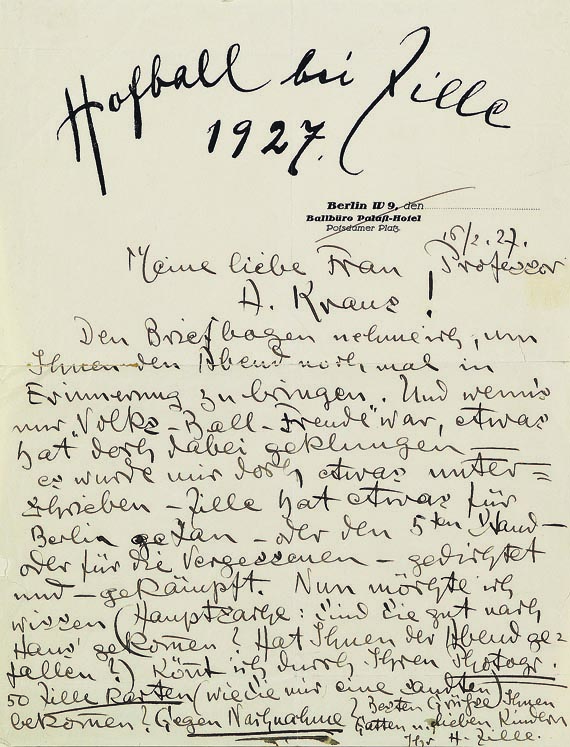 Hofball bei Zille
1927.
Berlin W 9, den
Ballbüro Palast-Hotel
Potsdamer Platz
16/2. 27.
Meine liebe Frau Professor
A. Kraus!
Den Briefbogen nehme ich, um
Ihnen den Abend noch mal in
Erinnerung zu bringen. Und wenn's
nur "Volks-Ball-Freude" war, etwas
hat doch dabei geklungen —
es wurde mir doch etwas unter=
schrieben – Zille hat etwas für
Berlin getan – oder den 5ten Stand –
oder für die Vergessenen – gedichtet
und – gekämpft. Nun möchte ich
wissen (Hauptsache: sind Sie gut nach
Haus' gekomen? Hat Ihnen der Abend ge=
fallen?) Könt ich durch Ihren Photogr.
50 Zille Karten (wie Sie mir eine sandten)
bekomen? Gegen Nachnahme?
Besten Grüsse Ihnen
Gatten u. lieben Kindern
Ihr H. Zille.